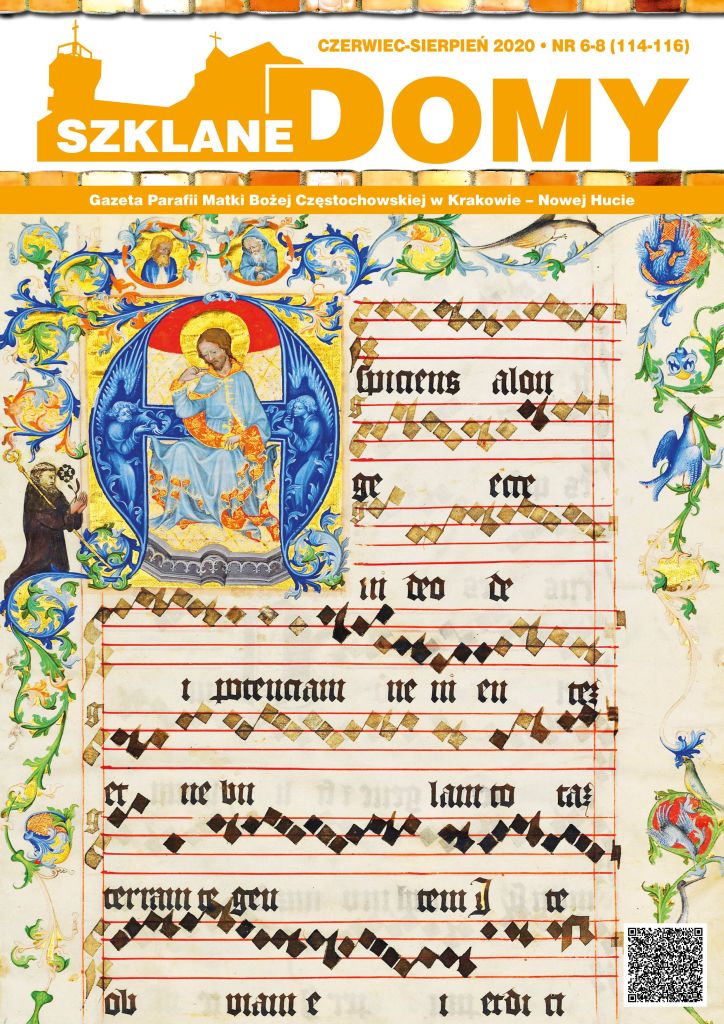 CZERWIEC-SIERPIEŃ 2020 • NR 6-8 (114-116)
SZKLANE DOMY
Gazeta Parafii Matki Bożej Częstochowskiej w Krakowie – Nowej Hucie
A
spiciens alon
ge ecce
in deo de
i potenciam ne ni en tez
et ne bu lam to taz
terram te gen tem I te
ob viam e i et di ci